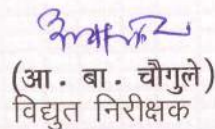 (आ . बा . चौगुले)
विद्युत निरीक्षक